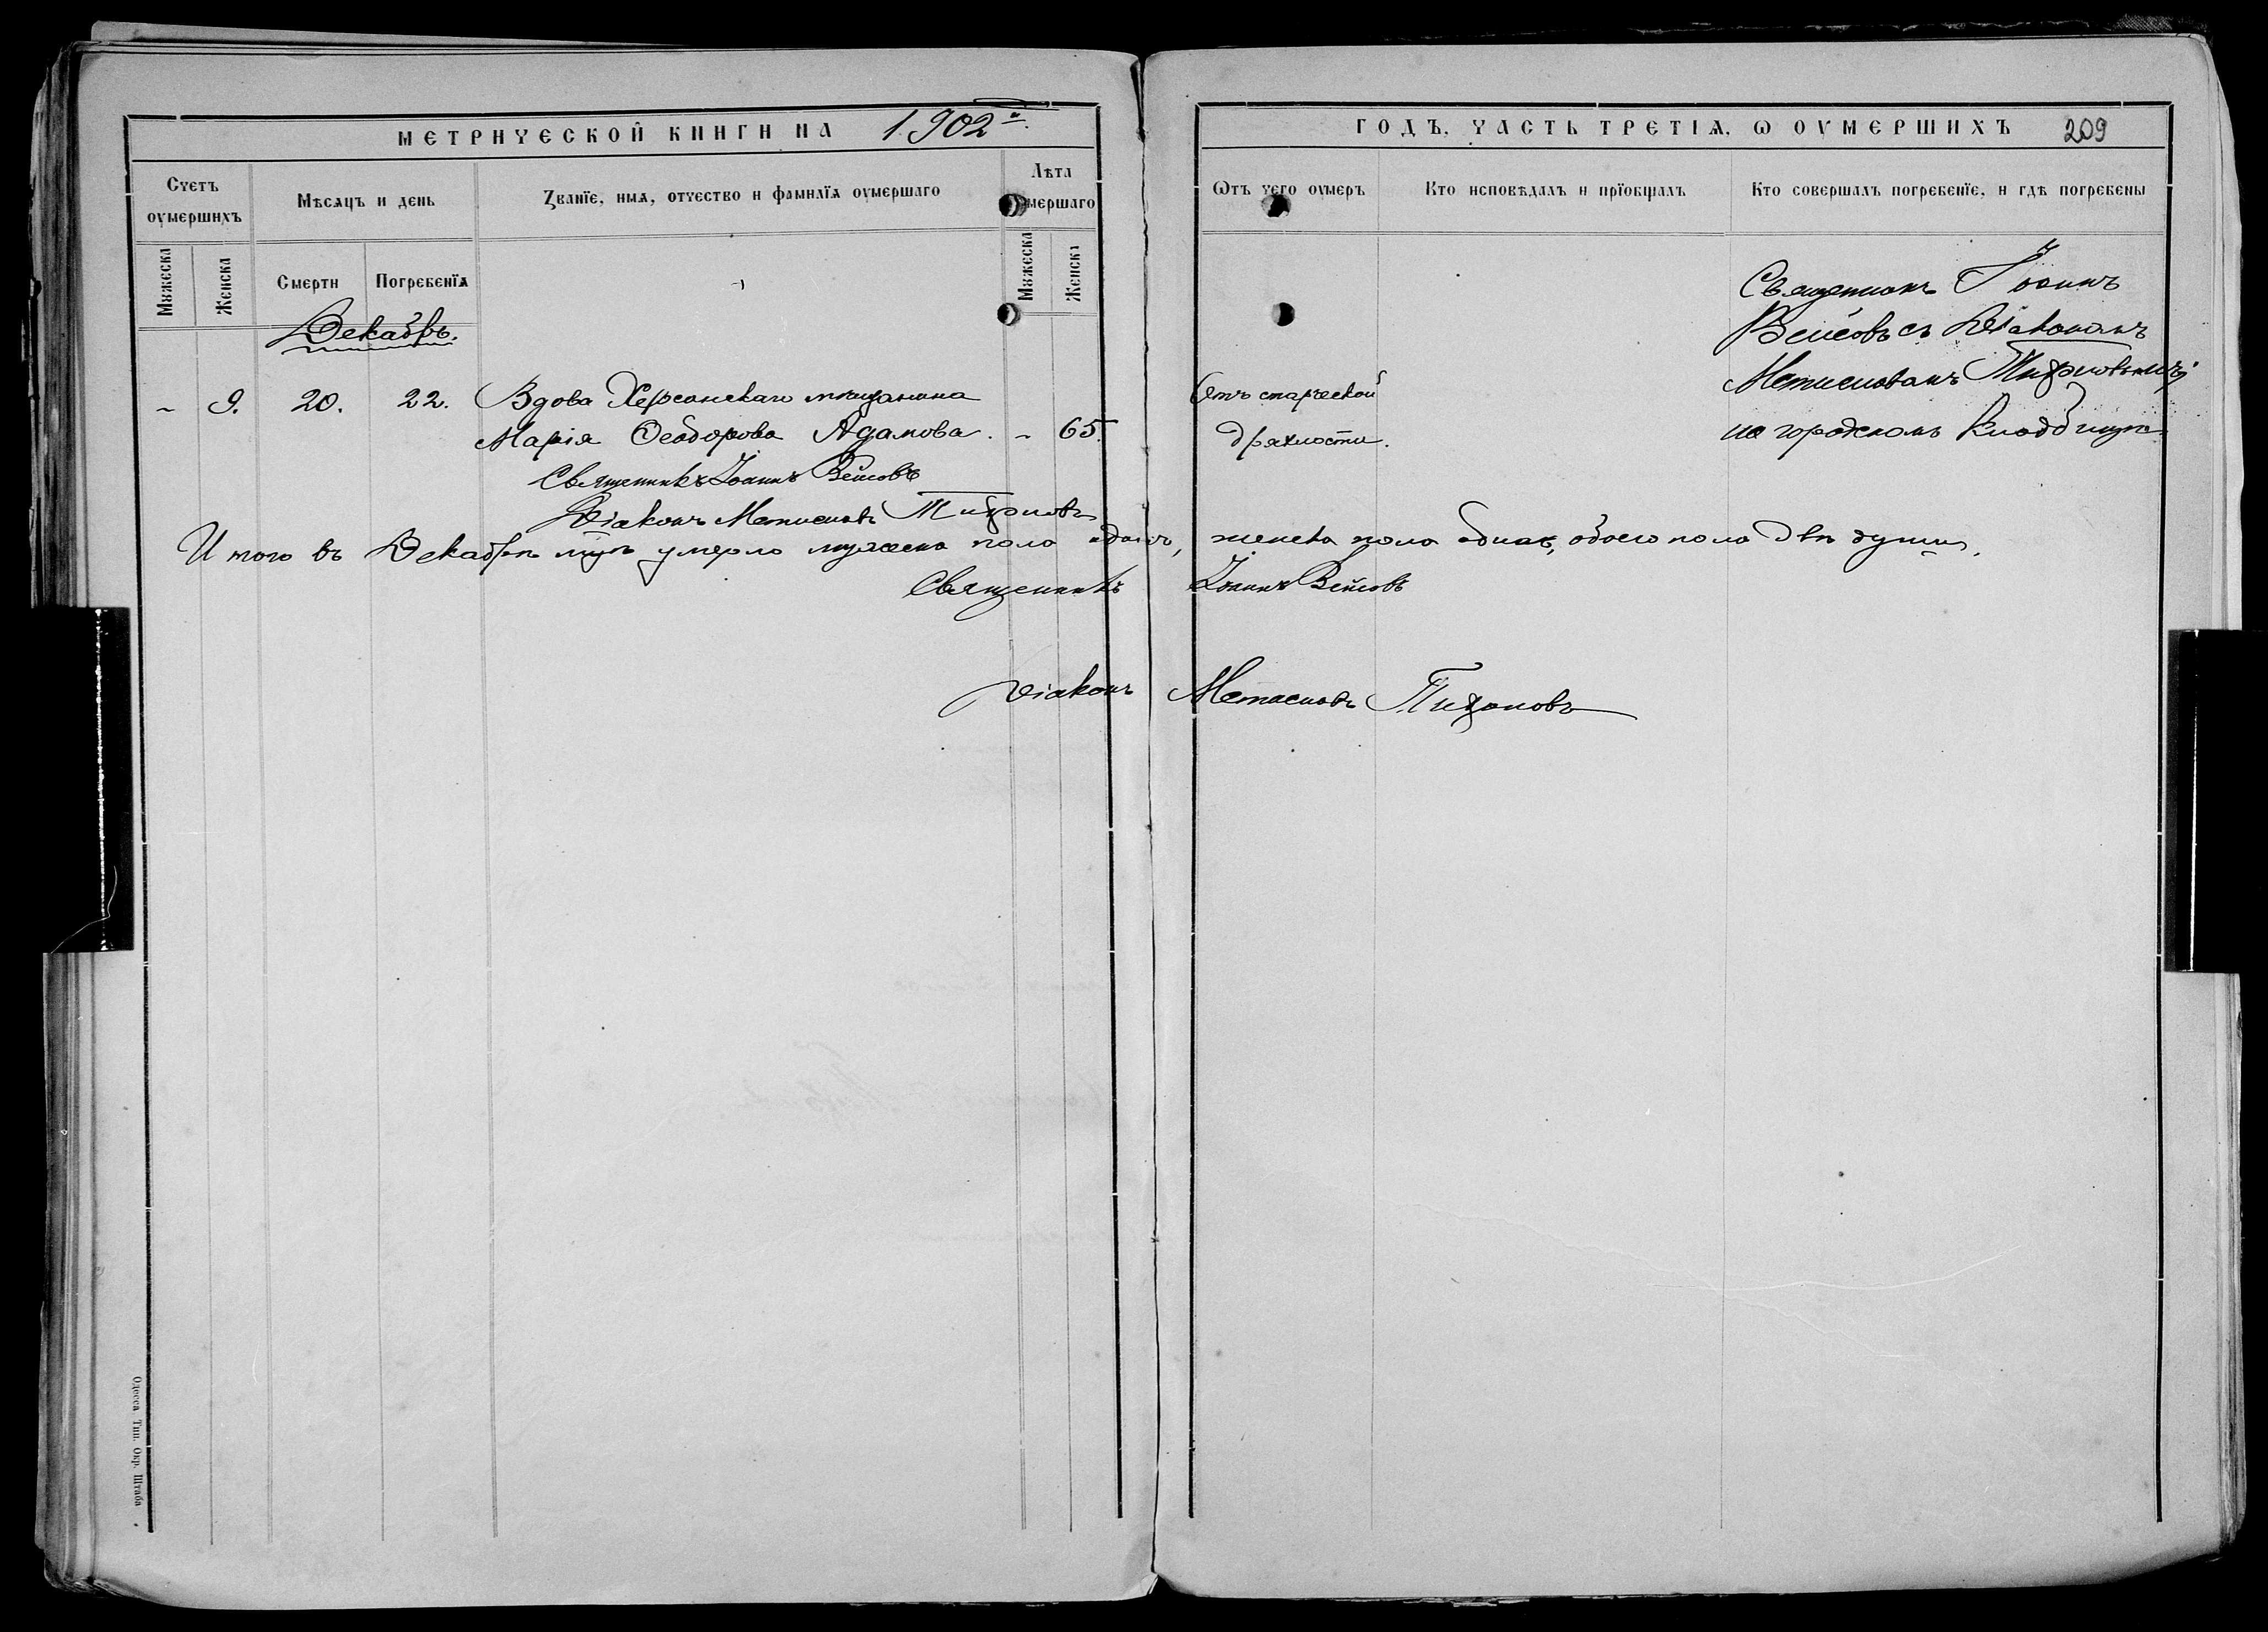 МЕТРИЧЕСКОЙ КНИГИ НА 1902й.
Счетъ оумершихъ
Мѣсяцъ и день
Званїе, имя, отчество и фамилїя оумершаго
Лѣта оумершаго
Мужеска
Женска
Смерти
Погребенїя
Мужеска
Женска
Декабрь.
- 9. 20. 22. Вдова Херсонскаго мѣщанина
Марія Ѳеодорова Адамова. - 65.
Священникъ Іоаннъ Вейсовъ
Діаконъ Мстиславъ Тихоновъ
Итого въ Декабрѣ мцѣ умерло мужеска пола одинъ,
Священникъ
Діаконъ
Одесса Тип. Окр. Штаба
ГОДЪ, ЧАСТЬ ТРЕТІЯ, Ѡ ОУМЕРШИХЪ 209
Ѿтъ чего оумеръ
Кто исповѣдалъ и прїобщалъ
Кто совершалъ погребенїе, и гдѣ погребены
Священникъ Іоаннъ
Вейсовъ съ Діакономъ
Мстиславомъ Тихоновымъ;
Отъ старческой
дряхлости.
на городскомъ кладбищѣ
женска пола одна, обоего пола двѣ души.
Іоаннъ Вейсовъ
Мстиславъ Тихоновъ